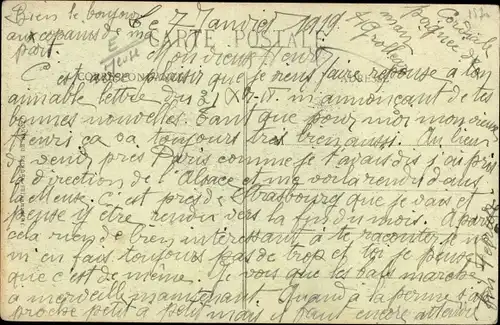 Bien le bonjour
aux copains de ma
part.
Le 7 Janvier 1919
Cordiale
poignée de
main
CARTE POSTALE
Meuse
Mon vieux Henri
C'est avec plaisir que je viens faire réponse à ton
aimable lettre du m'annonçant de tes
bonnes nouvelles. Tant que pour moi mon vieux
Henri ça va toujours très bien aussi. Au lieu
de venir près Paris comme je t'avais dis j'ai pris
la direction de l'Alsace et me voilà rendu dans
la Meuse. C'est près de Strasbourg que je vais et
pense y être rendu vers la fin du mois. A part
cela rien de bien intéressant à te raconter, je ne
m'en fais toujours pas de trop et toi je pense
que c'est de même. Je vois que les bals marche
à merveille maintenant. Quand à la perme s'a
proche petit à petit mais il faut encore attendre